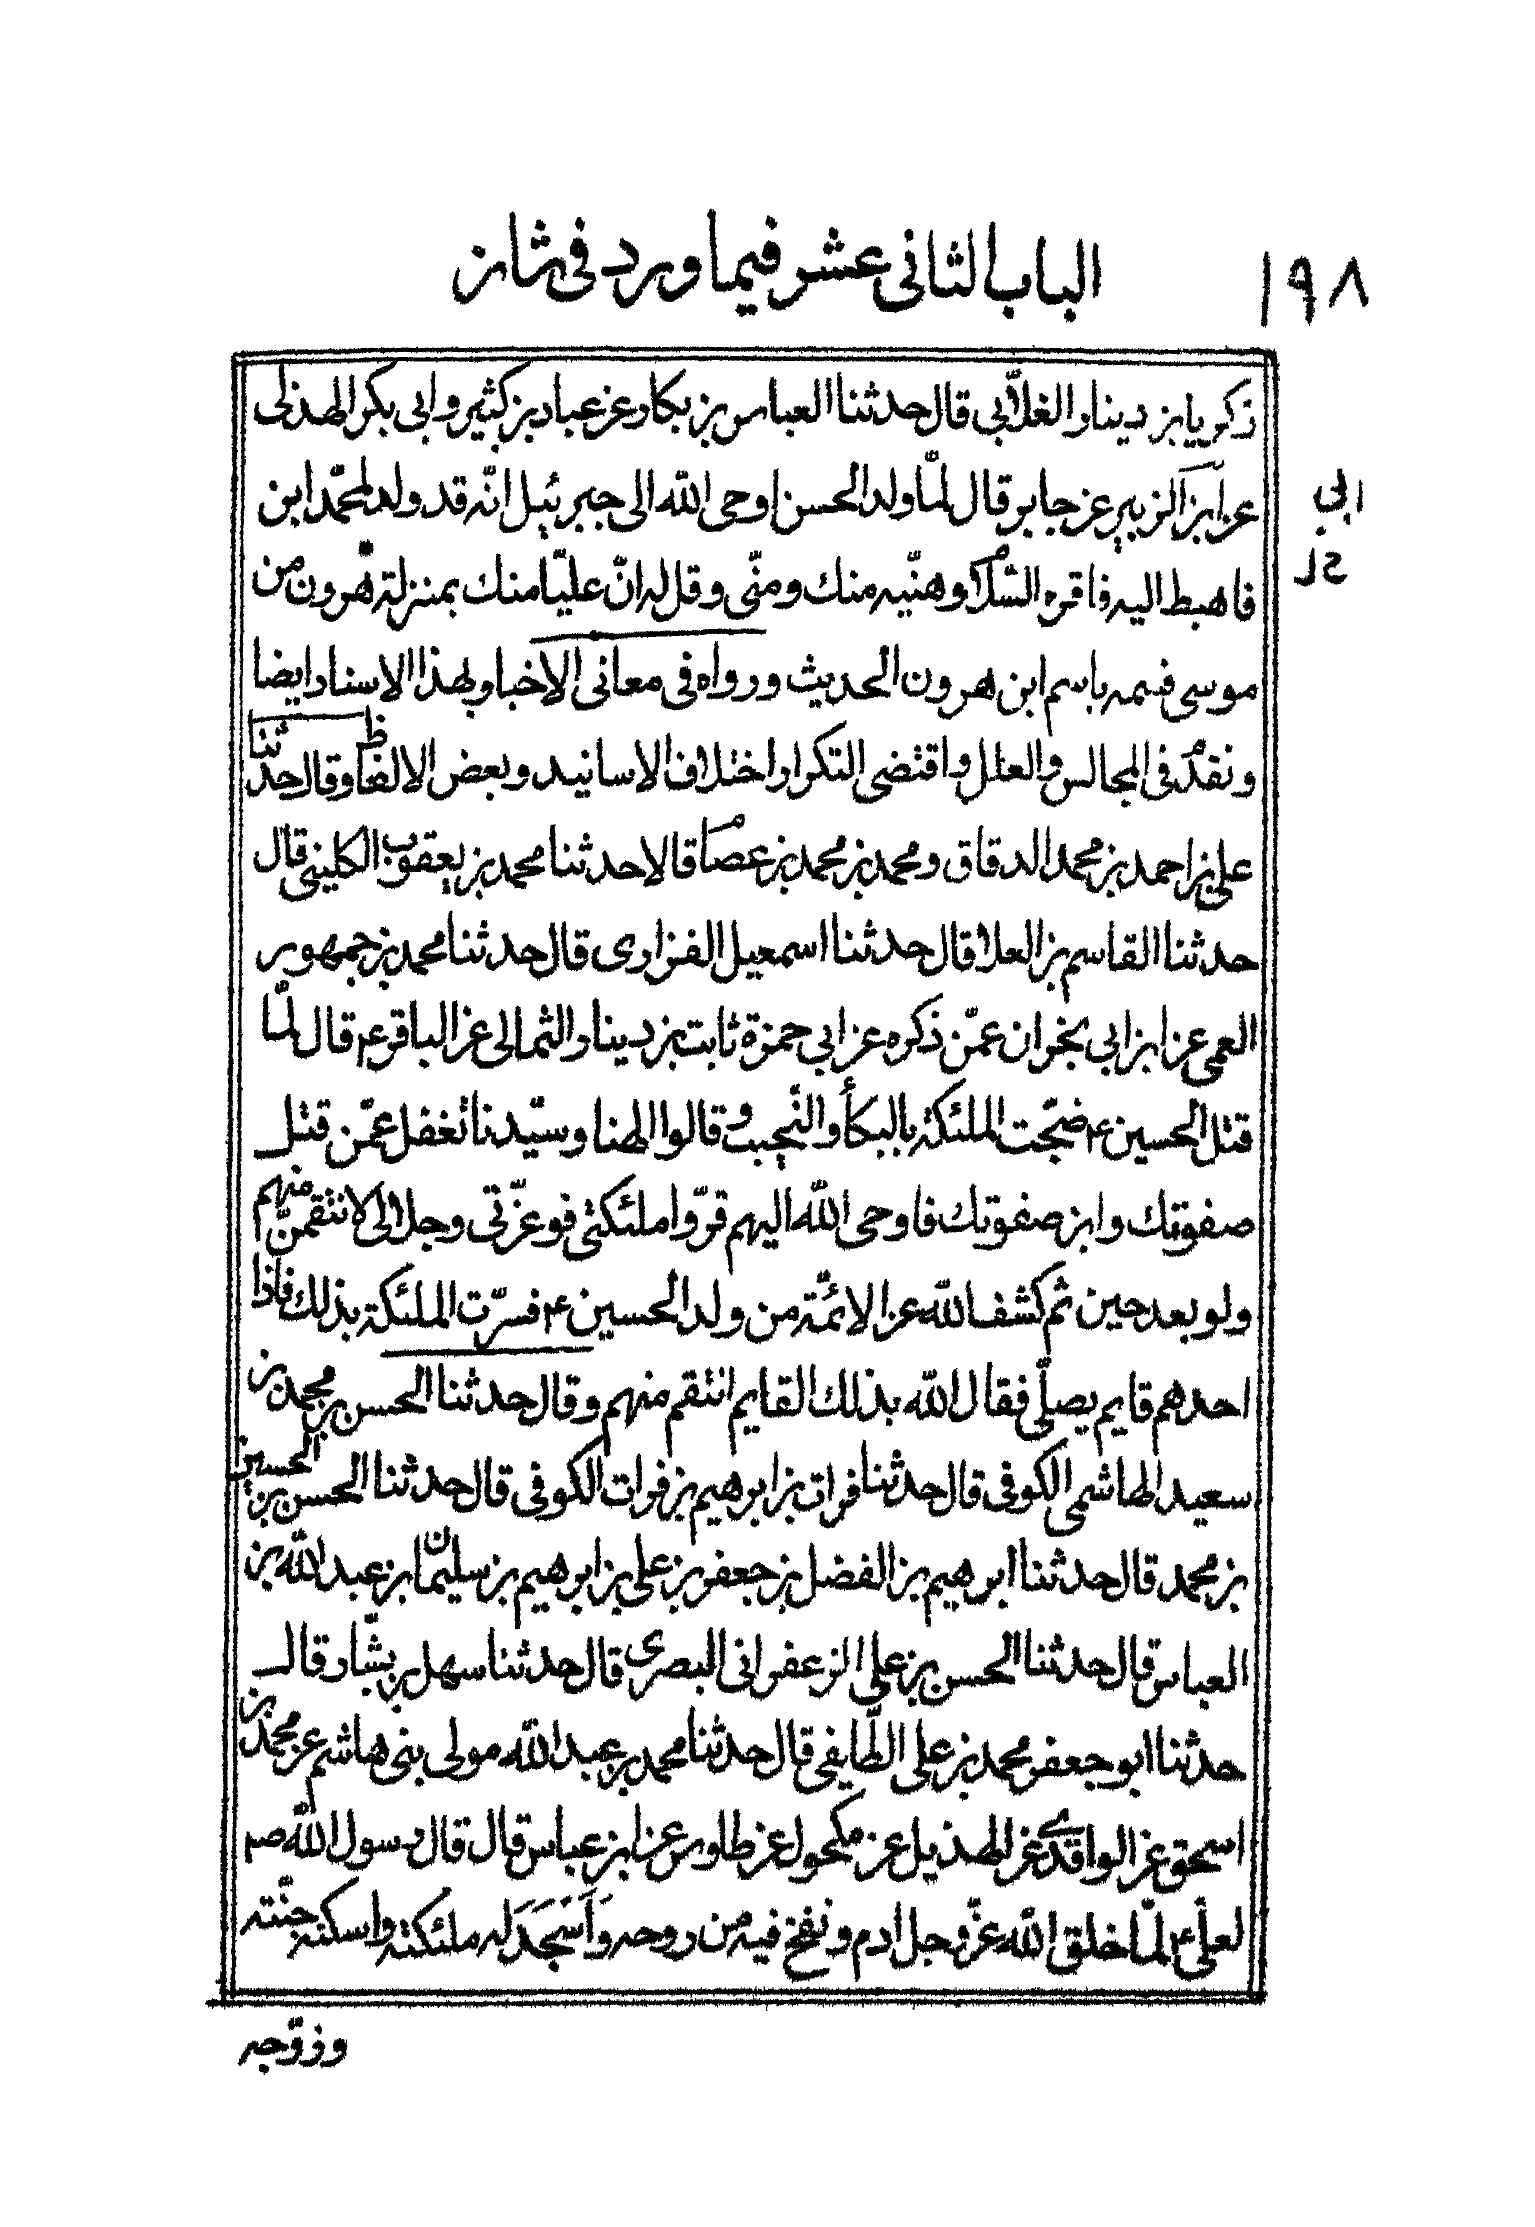 ١٩٨ الباب الثانى عشر فيما ورد فى شان
زكريا بن دينار الغلابي قال حدثنا العباس بن بكار عن عباد بن كثير وابى بكر الهذلى
عن ابن الزبير عن جابر قال لمّا ولد الحسن اوحى اللّه الى جبرئيل انّه قد ولد لمحمّد ابن
ابي
فاهبط اليه فاقره السّلام وهنّيه منك ومنّى وقل له انّ عليّا منك بمنزلة هرون من
موسى فسمه باسم ابن هرون الحديث ورواه فى معانى الاخبار بهذا الاسناد ايضا
ونقدّم فى المجالس والعلل واقتضى التكرار اختلاف الاسانيد وبعض الالفاظ وقال حدثنا
على بن احمد بن محمد الدقاق ومحمد بن محمد بن عصام قالا حدثنا محمد بن يعقوب الكلينى قال
حدثنا القاسم بن العلا قال حدثنا اسمعيل الفزارى قال حدثنا محمد بن جمهور
العمى عن ابن ابي نجران عمّن ذكره عن ابي حمزة ثابت بن دينار الثمالى عن الباقر ع قال لمّا
قتل الحسين ع ضجّت الملئكة بالبكأ والنّحيب وقالوا الهنا وسيّدنا تغفل عمّن قتل
صفوتك وابن صفوتك فاوحى اللّه اليهم قرّوا ملئكتى فوعزّتى وجلالى لانتقمنّ منهم
ولو بعد حين ثم كشف اللّه عن الائمّة من ولد الحسين ع فسرّت الملئكة بذلك فاذا
احدهم قايم يصلّى فقال اللّه بذلك القايم انتقم منهم وقال حدثنا الحسن بن محمد بن
سعيد الهاشمى الكوفى قال حدثنا فرات بن ابرهيم بن فرات الكوفى قال حدثنا الحسن بن الحسين
بن محمد قال حدثنا ابرهيم بن الفضل بن جعفر بن على بن ابرهيم بن سليمان بن عبد اللّه بن
العباس قال حدثنا الحسن بن على الزعفرانى البصرى قال حدثنا سهل بن بشّار قال
حدثنا ابو جعفر محمد بن على الطّايفى قال حدثنا محمد بن عبد اللّه مولى بنى هاشم عن محمد بن
اسحق عن الواقدى عن الهذيل عن مكحول عن طاوس عن ابن عباس قال قال رسول اللّه ص
لعلى ع لمّا خلق اللّه عزّ وجل ادم ونفخ فيه من روحه وَاَسْجَدَ له ملئكته واسكنه جنّته
وزوّجه